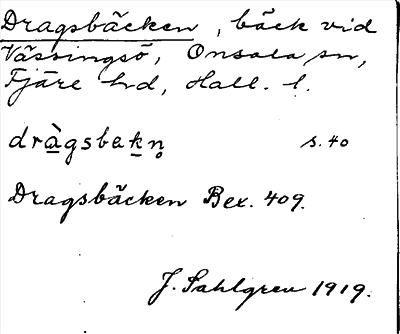 Dragsbäcken, bäck vid
Vässingsö, Onsala sn,
Fjäre hd, Hall. l.
dràgsbakn̥ s. 40
Dragsbäcken Bex. 409.
J. Sahlgren 1919.